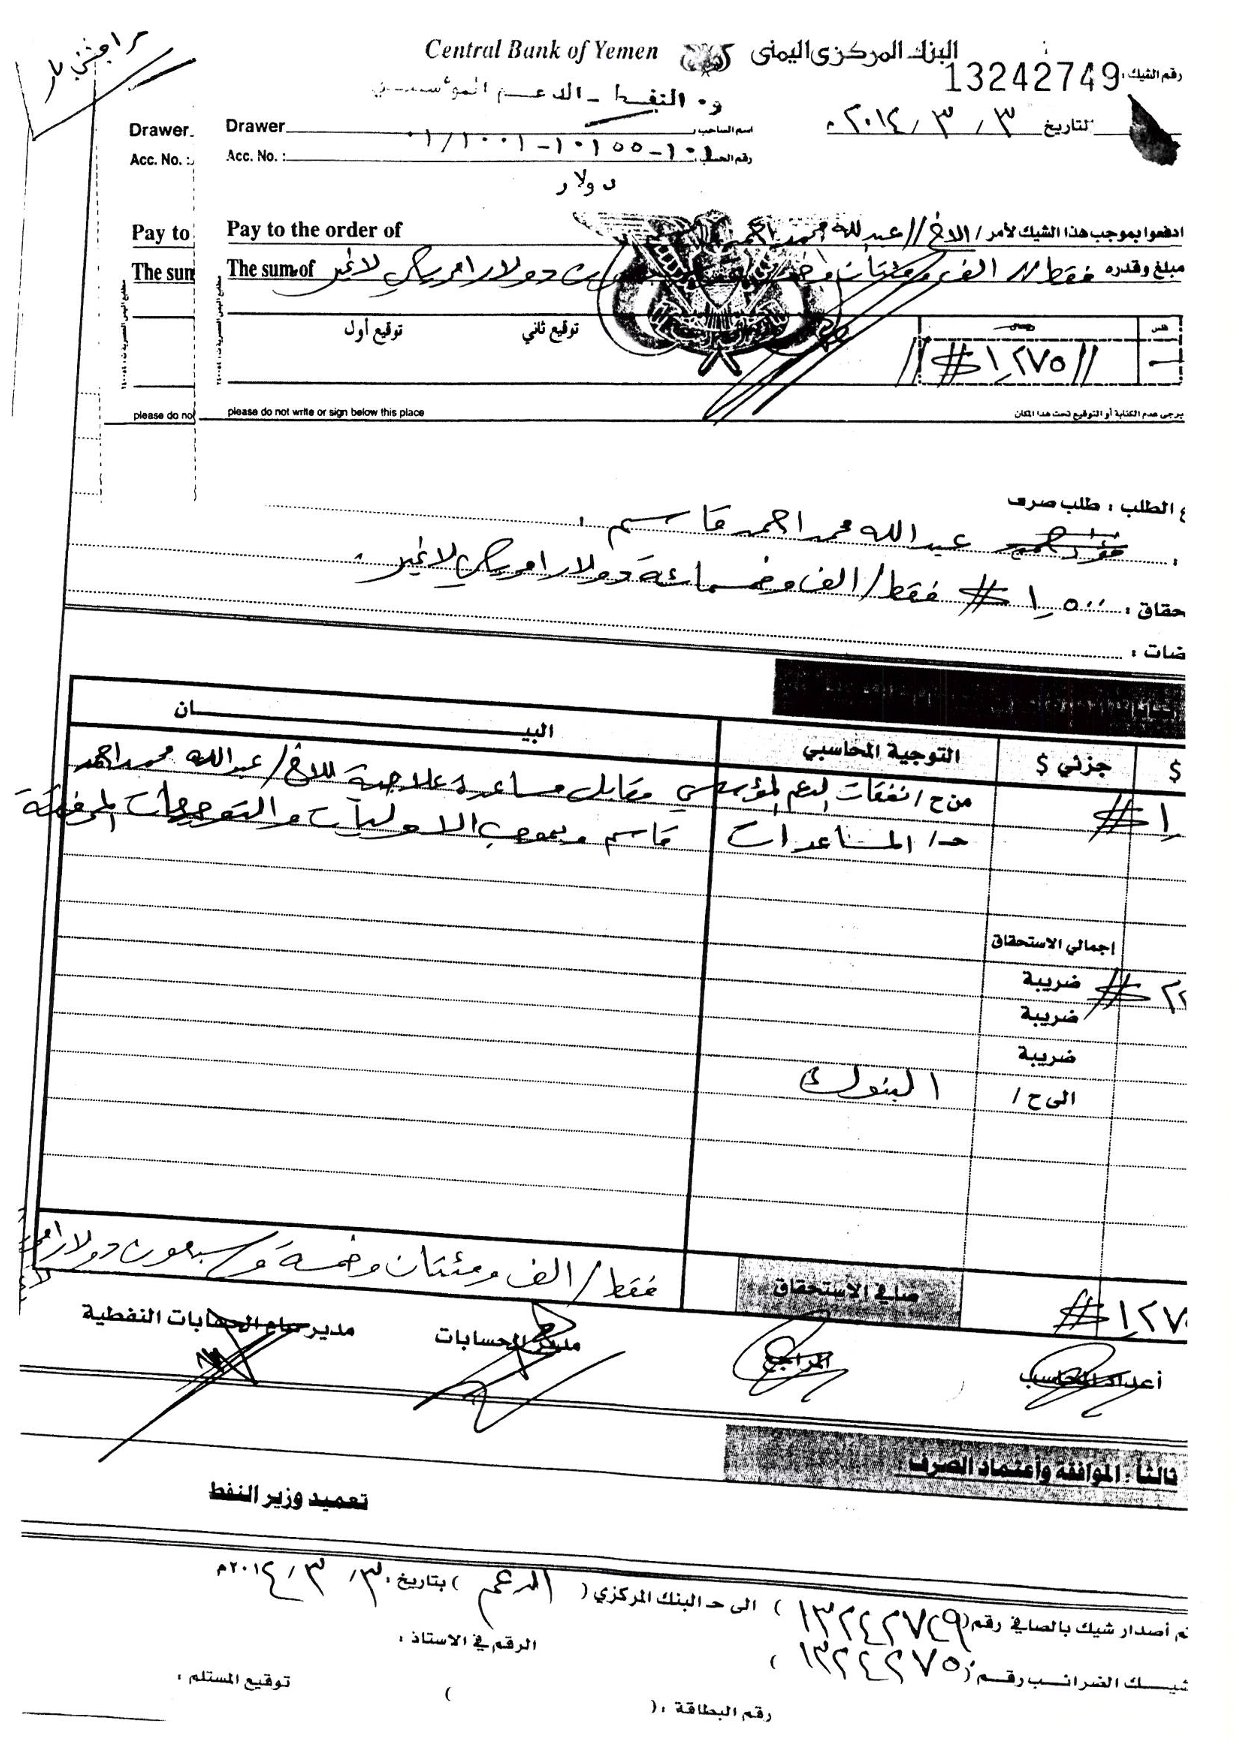 Central Bank of Yemen البنك المركزى اليمنى
رقم الشيك : 13242749
و. النفط - الدعم المؤسسي
Drawer Drawer اسم الساحب :
التاريخ ٣ / ٣ / ٢٠١٤
Acc. No. : Acc. No. : رقم الحساب : ٠١/١٠٠١-١٠١٥٥-١٠١
دولار
Pay to Pay to the order of ادفعوا بموجب هذا الشيك لأمر / الاخ // عبدالله محمد احمد
The sum The sum of مبلغ وقدره فقط // الف ومئتان دولار امريكي لاغير
توقيع أول توقيع ثاني فلس
//١,٢٧٥$// —
please do not please do not write or sign below this place يرجى عدم الكتابة أو التوقيع تحت هذا المكان
ع الطلب : طلب صرف
عبدالله محمد احمد قاسم .
حقاق : ١,٥٠٠ $ فقط / الف وخمسمائة دولار امريكي لاغير .
ضات :
$ جزئي $ التوجية المحاسبي البيـــــان
$١, من ح / نفقات الدعم المؤسسي مقابل مساعدة علاجية للاخ / عبدالله محمد احمد
حـ/ المساعدات قاسم وبموجب الاوليات والتوجيهات المرفقة
إجمالي الاستحقاق
$٢٢ ضريبة
ضريبة
ضريبة
الى ح / البنوك
$١,٢٧ صافي الاستحقاق فقط / الف ومئتان وخمسة وسبعون دولار
أعداد المحاسب المراجع مدير الحسابات مدير عام الحسابات النفطية
ثالثاً : الموافقة وأعتماد الصرف :
تعميد وزير النفط
تم أصدار شيك بالصافي رقم( ١٣٢٤٢٧٤٩ ) الى حـ البنك المركزي ( الدعم ) بتاريخ : ٣ / ٣ / ٢٠١٤م
شيـك الضرائـب رقـم :( ١٣٢٤٢٧٥٠ ) الرقم في الاستاذ :
رقم البطاقة :( ) توقيع المستلم :